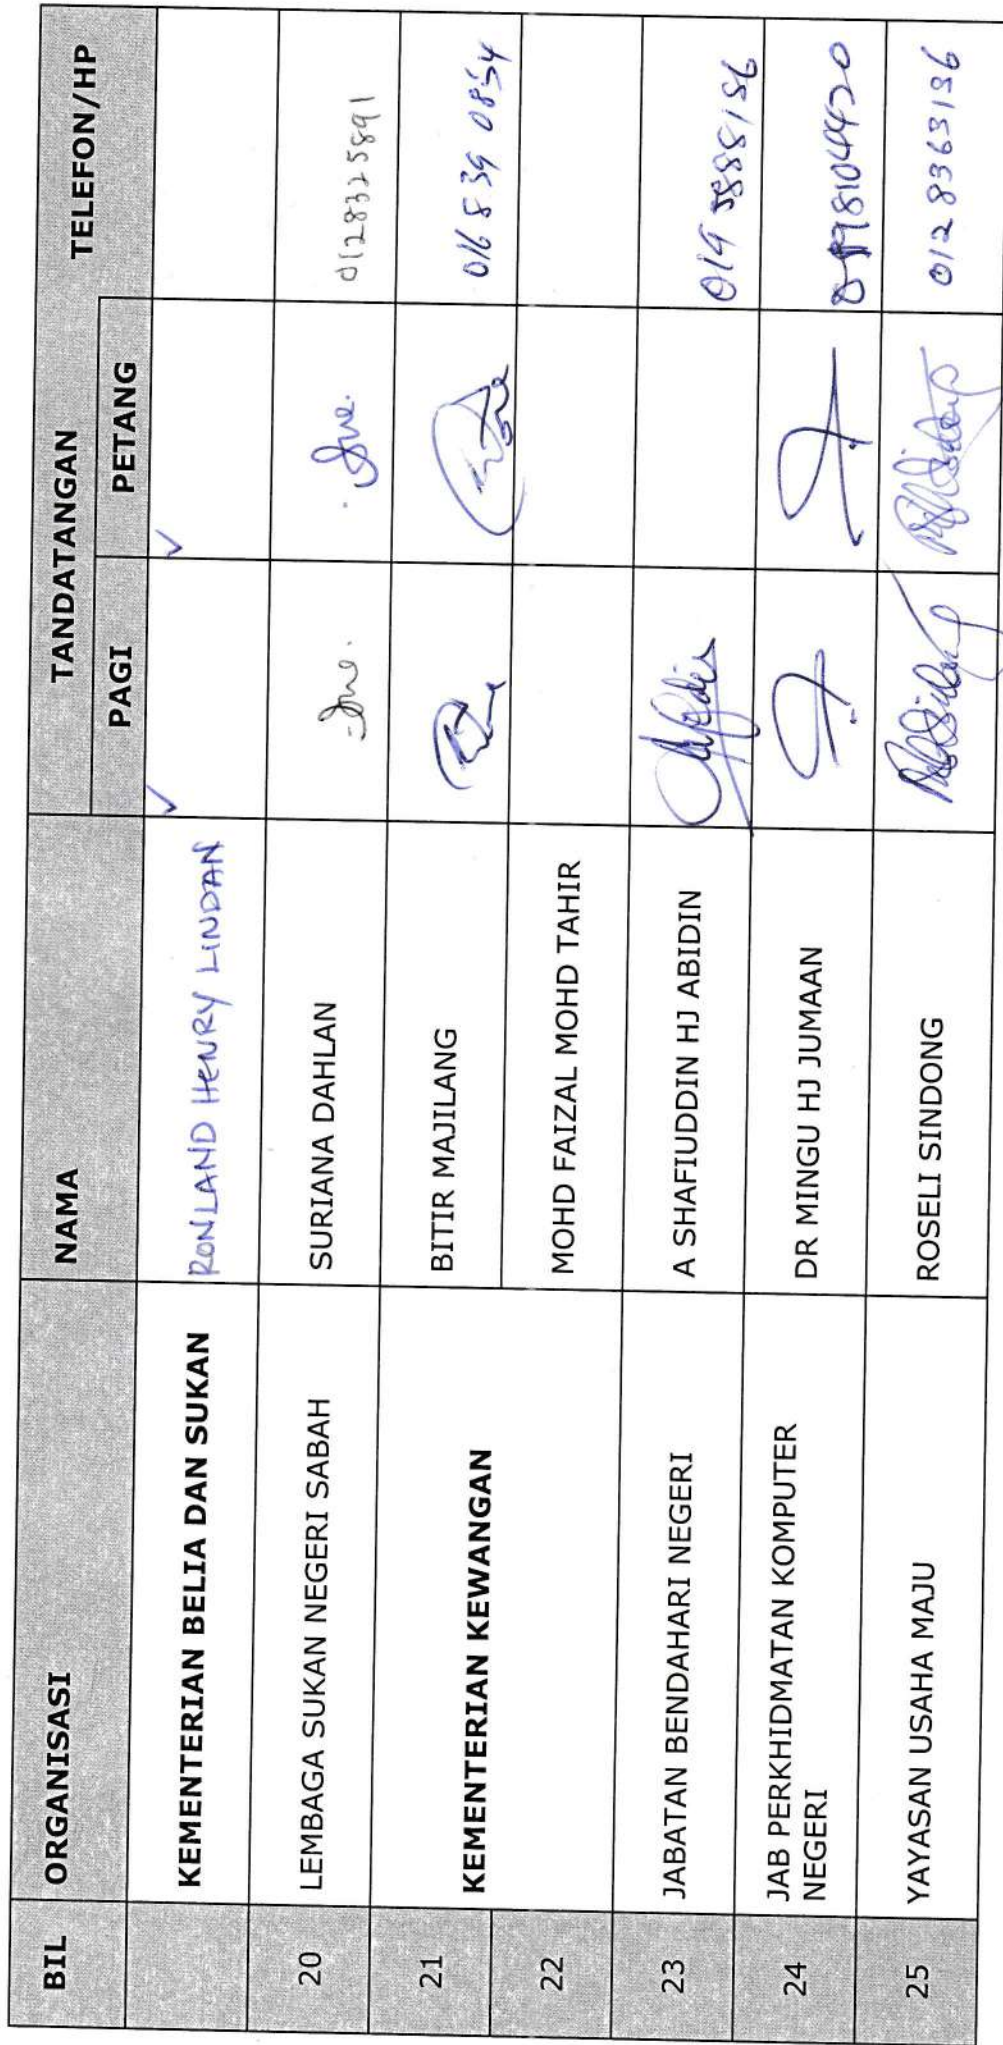 BIL ORGANISASI NAMA TANDATANGAN TELEFON/HP
PAGI PETANG
KEMENTERIAN BELIA DAN SUKAN RONLAND HENRY LINDAN ✓ ✓
20 LEMBAGA SUKAN NEGERI SABAH SURIANA DAHLAN Sue. Sue. 0128325891
21 KEMENTERIAN KEWANGAN BITIR MAJILANG 016 839 0854
22 MOHD FAIZAL MOHD TAHIR
23 JABATAN BENDAHARI NEGERI A SHAFIUDDIN HJ ABIDIN 019 5888186
24 JAB PERKHIDMATAN KOMPUTER
NEGERI DR MINGU HJ JUMAAN
25 YAYASAN USAHA MAJU ROSELI SINDONG 012 8363136